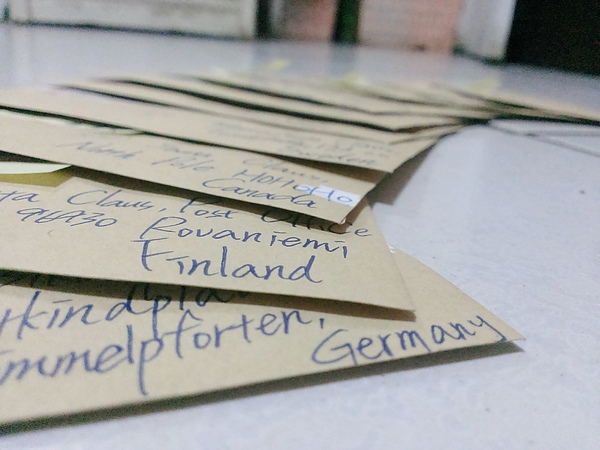 Santa Claus
North Pole H0H 0H0
Canada
ta Claus, Post Office
96930 Rovaniemi
Finland
tkindpla
immelpforten,
Germany